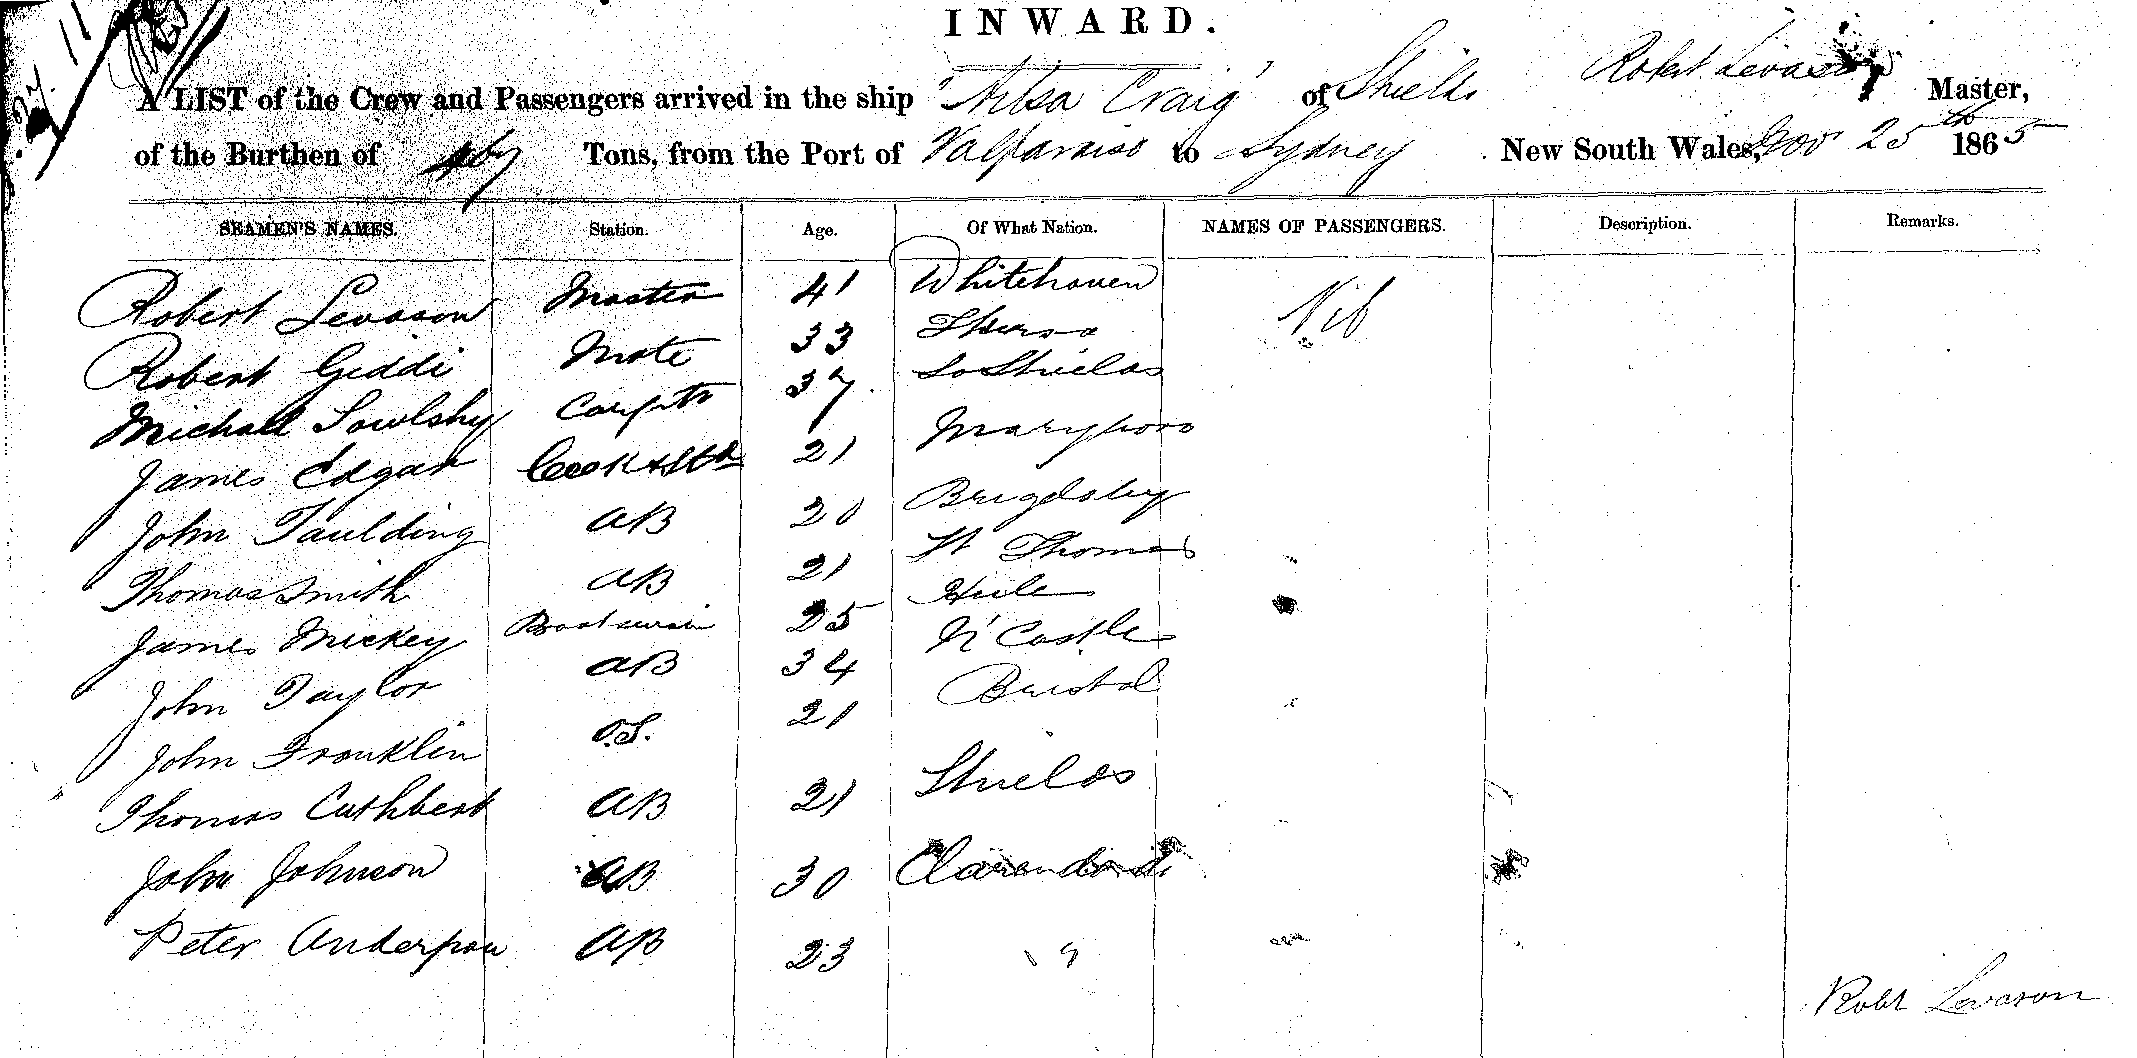 INWARD.
A LIST of the Crew and Passengers arrived in the ship "Ailsa Craig" of Shields Robert Levason Master,
of the Burthen of 467 Tons, from the Port of Valparaiso to Sydney New South Wales, Nov 25th 1865
SEAMEN'S NAMES. Station. Age. Of What Nation. NAMES OF PASSENGERS. Description. Remarks.
Robert Levason Master 41 Whitehaven Nil
Robert Geddi Mate 33 Thurso
Michael Sowlsby Carptr 37 So Shields
James Edgar Cook & Std 21 Maryboro
John Taulding AB 20
Thomas Smith AB 21 St Thomas
James Mickey Boatswain 25 Hull
John Taylor AB 34 N'Castle
John Franklin O.S. 21 Bristol
Thomas Cuthbert AB 21 Shields
John Johnson AB 30
Peter Anderson AB 23 "
Robt Levason